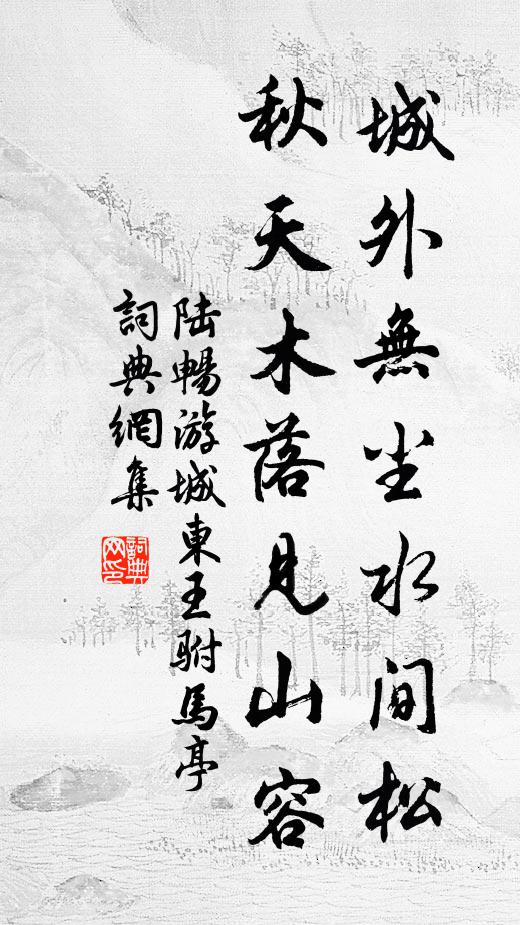 城外無尘水间松
秋天木落见山容
陆暢游城東王駙馬亭
詞典網集
詞典网印